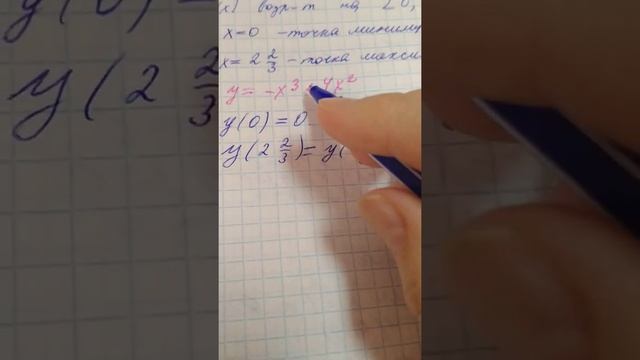 возр-т на
x=0 -точка миним
x= 2 2/3 -точка макси
y= -x³+4x²
y(0)=0
y(2 2/3)= y(